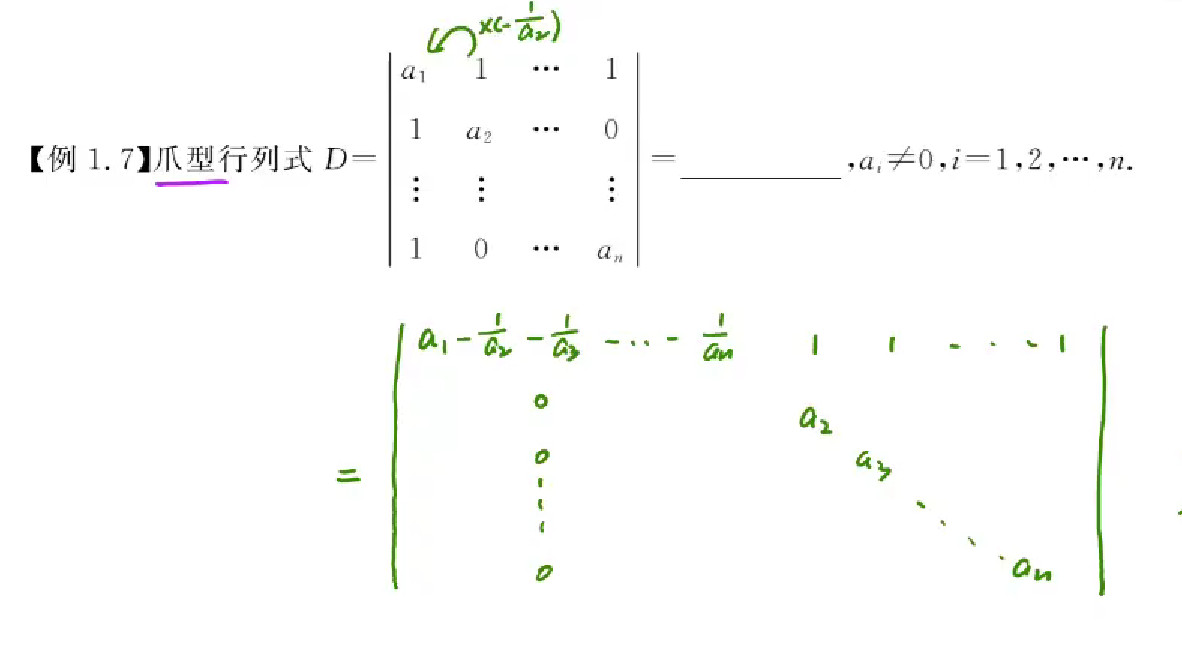 ×(-1/a₂)
【例 1.7】爪型行列式 D= | a₁ 1 ⋯ 1 | = ________ ,aᵢ≠0,i=1,2,⋯,n.
| 1 a₂ ⋯ 0 |
| ⋮ ⋮ ⋮ |
| 1 0 ⋯ aₙ |
= | a₁ - 1/a₂ - 1/a₃ - ⋯ - 1/aₙ 1 1 ⋯ 1 |
0 a₂
0 a₃
⋮ ⋱
0 aₙ